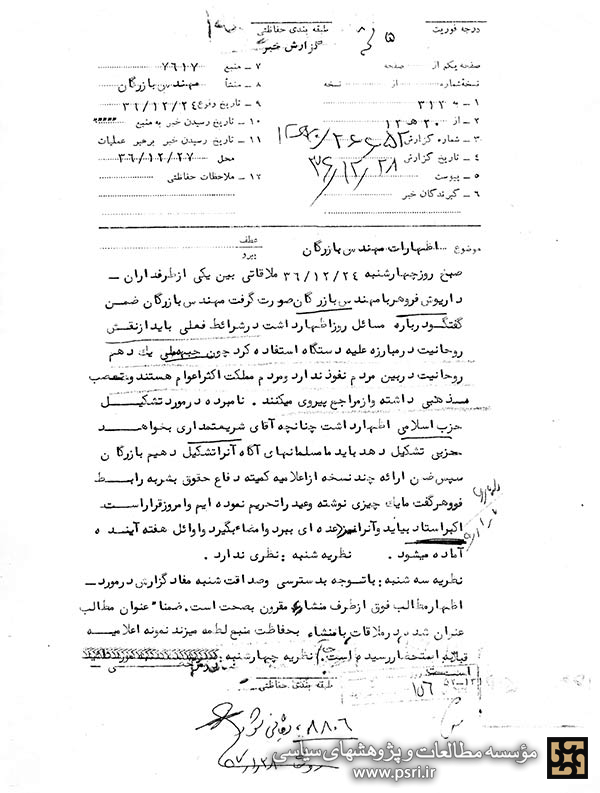 درجه فوریت
طبقه بندی حفاظتی
گزارش خبر
صفحه یکم از صفحه
نسخه شماره از نسخه
۱ - به ۳۱۲
۲ - از ۲۰ هـ ۱۲
۳ - شماره گزارش
۴ - تاریخ گزارش ۳۶/۱۲/۲۸
۵ - پیوست
۶ - گیرندگان خبر
۷ - منبع ۷۶۱۷
۸ - منشأ مهندس بازرگان
۹ - تاریخ وقوع ۳۶/۱۲/۲۴
۱۰ - تاریخ رسیدن خبر به منبع " " "
۱۱ - تاریخ رسیدن خبر برهبر عملیات
محل ۳۶/۱۲/۲۷
۱۲ - ملاحظات حفاظتی
موضوع اظهارات مهندس بازرگان
عطف
پیرو
صبح روز چهارشنبه ۳۶/۱۲/۲۴ ملاقاتی بین یکی از طرفداران -
داریوش فروهر با مهندس بازرگان صورت گرفت مهندس بازرگان ضمن
گفتگو درباره مسائل روز اظهار داشت در شرائط فعلی باید از نقش
روحانیت در مبارزه علیه دستگاه استفاده کرد چون جبهه ملی یك دهم
روحانیت در بین مردم نفوذ ندارد و مردم مملکت اکثرا عوام هستند و تعصب
مذهبی داشته و از مراجع پیروی میکنند . نامبرده در مورد تشکیل
حزب اسلامی اظهار داشت چنانچه آقای شریعتمداری بخواهد
حزبی تشکیل دهد باید ما مسلمانهای آگاه آنرا تشکیل دهیم بازرگان
سپس ضمن ارائه چند نسخه از اعلامیه کمیته دفاع حقوق بشر به رابط
فروهر گفت ما یك چیزی نوشته و عید را تحریم نموده ایم و امروز قرار است
اکبر استاد بیاید و آنرا نیز عده ای ببرد و امضاء بگیرد و اوائل هفته آینده
آماده میشود . نظریه شنبه : نظری ندارد .
نظریه سه شنبه : با توجه به دسترسی و صداقت شنبه مفاد گزارش در مورد -
اظهار مطالب فوق از طرف منشاء مقرون بصحت است . ضمنا " عنوان مطالب
عنوان شده در ملاقات با منشاء بحفاظت منبع لطمه میزند نمونه اعلامیه
قبلا به استحضار رسیده است . نظریه چهارشنبه :
طبقه بندی حفاظتی
۱۵۶
۸۸۰۶
مؤسسه مطالعات و پژوهشهای سیاسی
www.psri.ir